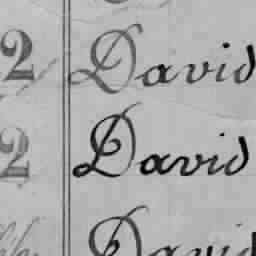 2 David
2 David
David